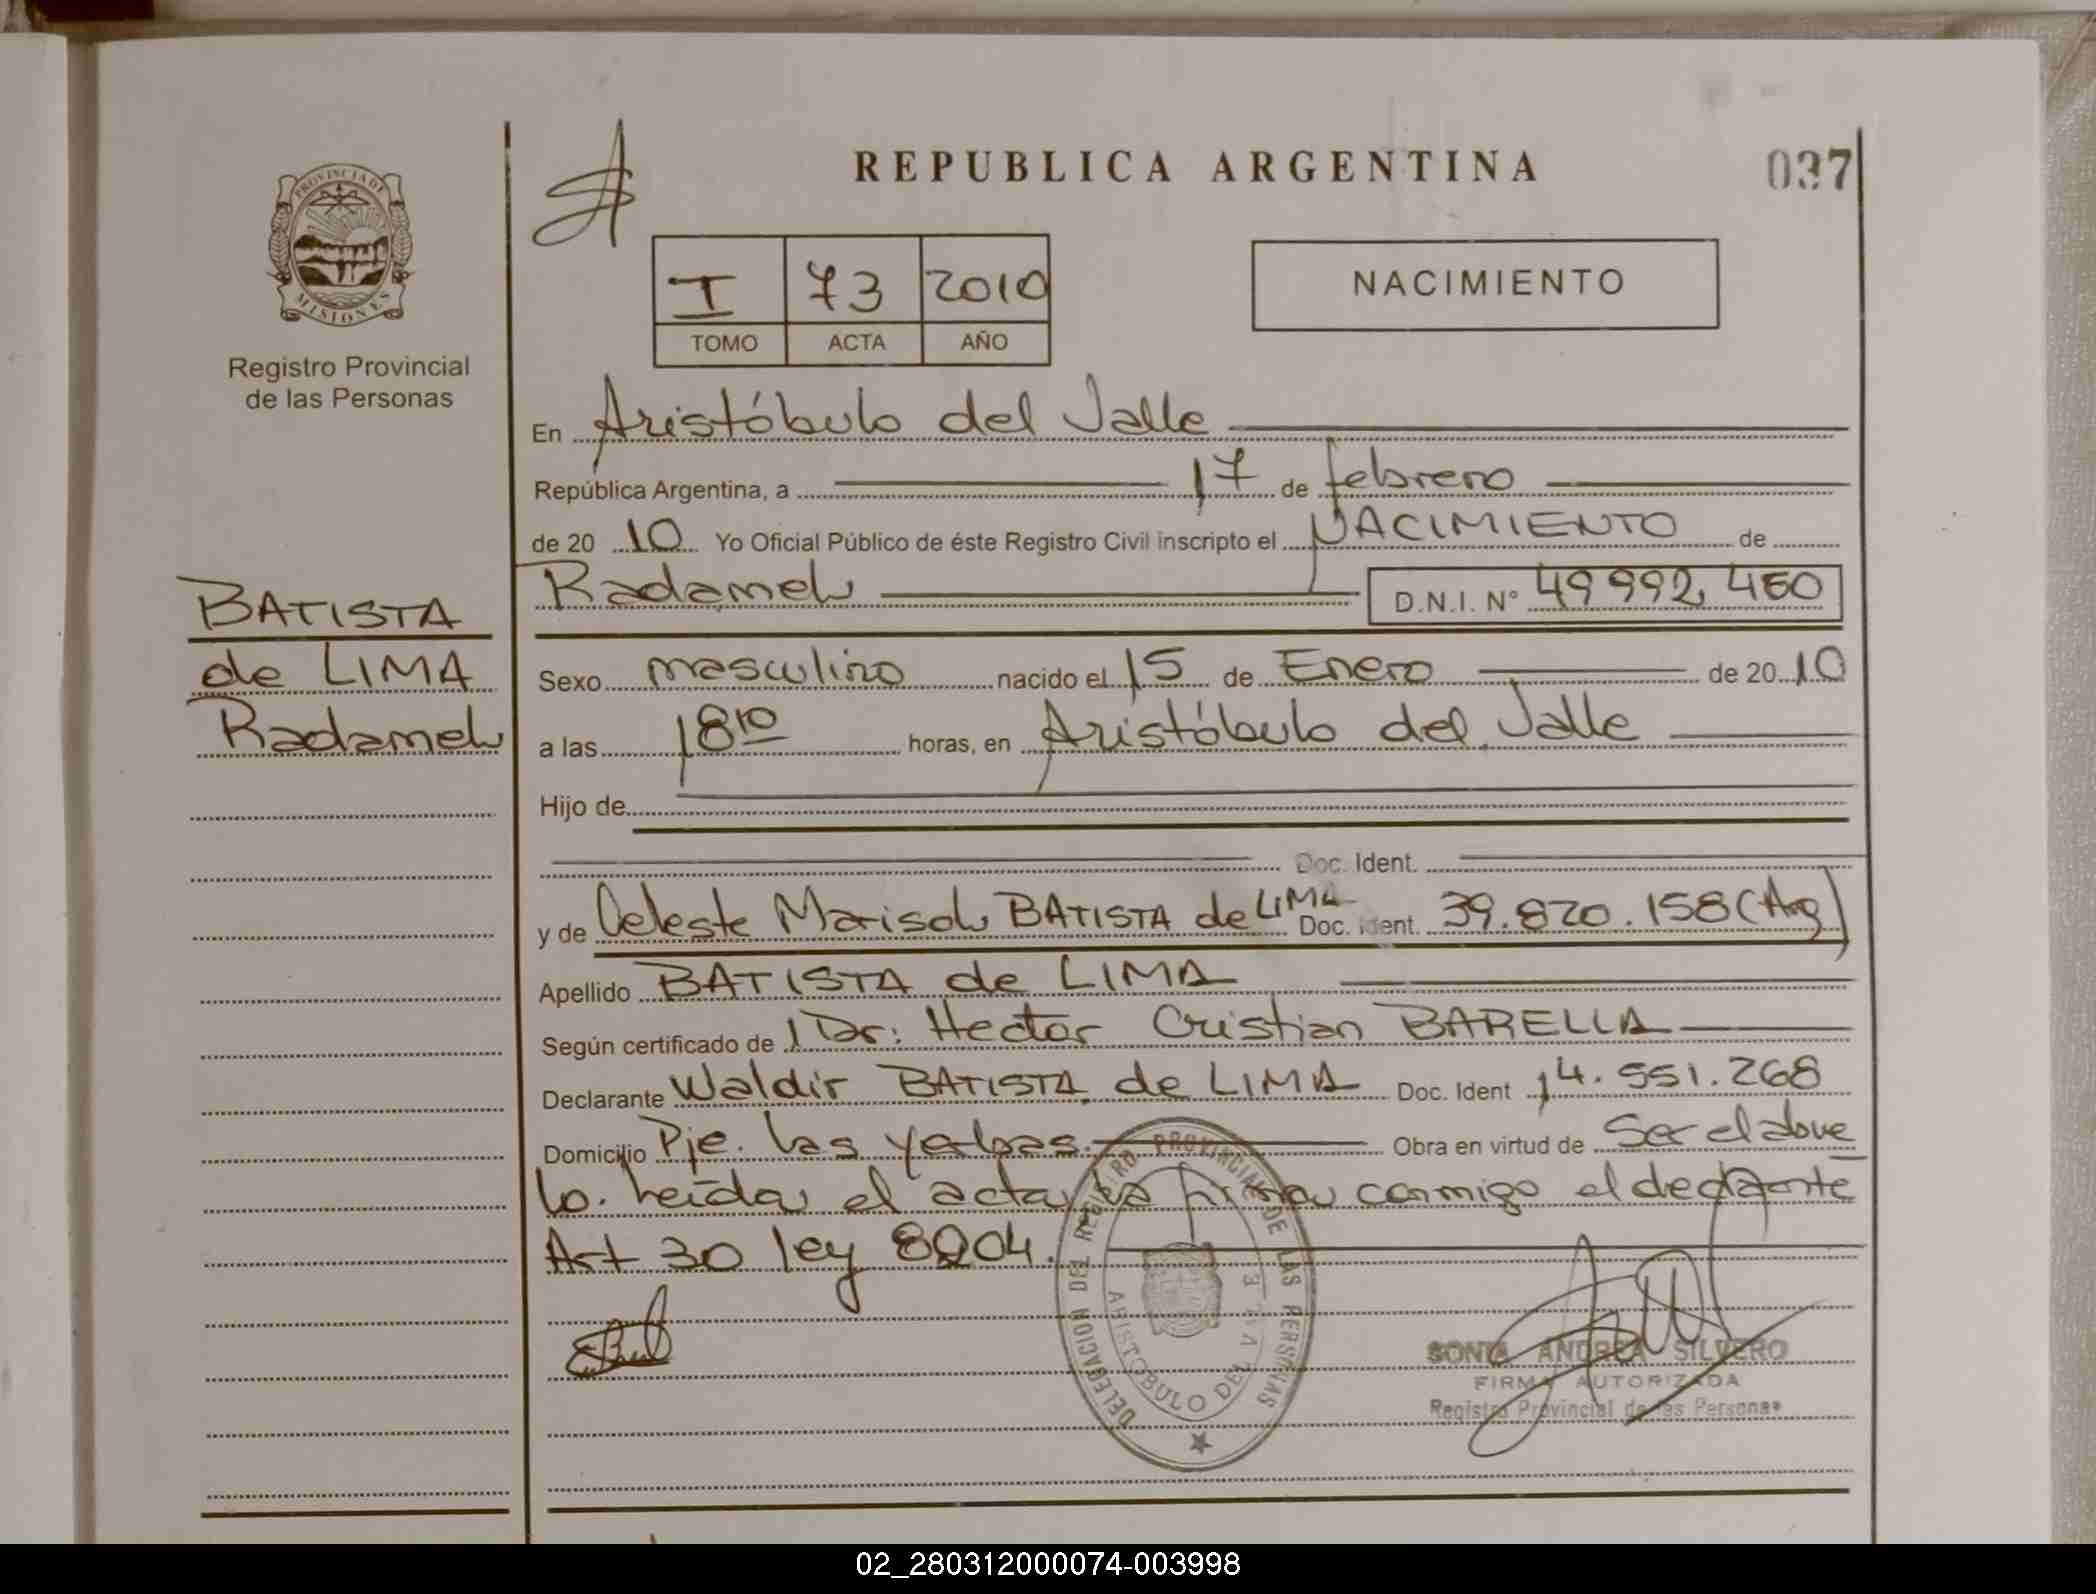 REPUBLICA ARGENTINA
037
PROVINCIA DE
MISIONES
Registro Provincial
de las Personas
I 73 2010
TOMO ACTA AÑO
NACIMIENTO
En Aristóbulo del Valle
República Argentina, a 17 de febrero
de 20 10 Yo Oficial Público de éste Registro Civil inscripto el NACIMIENTO de
Radamel D.N.I. N° 49 992 460
BATISTA
de LIMA
Radamel
Sexo masculino nacido el 15 de Enero de 20 10
a las 18 10 horas, en Aristóbulo del Valle
Hijo de
Doc. Ident.
y de Celeste Marisol BATISTA de LIMA Doc. Ident. 39.820.158 (Arg)
Apellido BATISTA de LIMA
Según certificado de Dr: Hector Cristian BARELLA
Declarante Waldir BATISTA de LIMA Doc. Ident 14.551.268
Domicilio Pje. Las Yerbas. Obra en virtud de Ser el abue
lo. Leída el acta la firma conmigo el declarante
Art 30 ley 8204.
DELEGACION DEL REGISTRO PROVINCIAL DE LAS PERSONAS
ARISTOBULO DEL VALLE
SONIA ANDREA SILVERO
FIRMA AUTORIZADA
Registro Provincial de las Personas
02_280312000074-003998